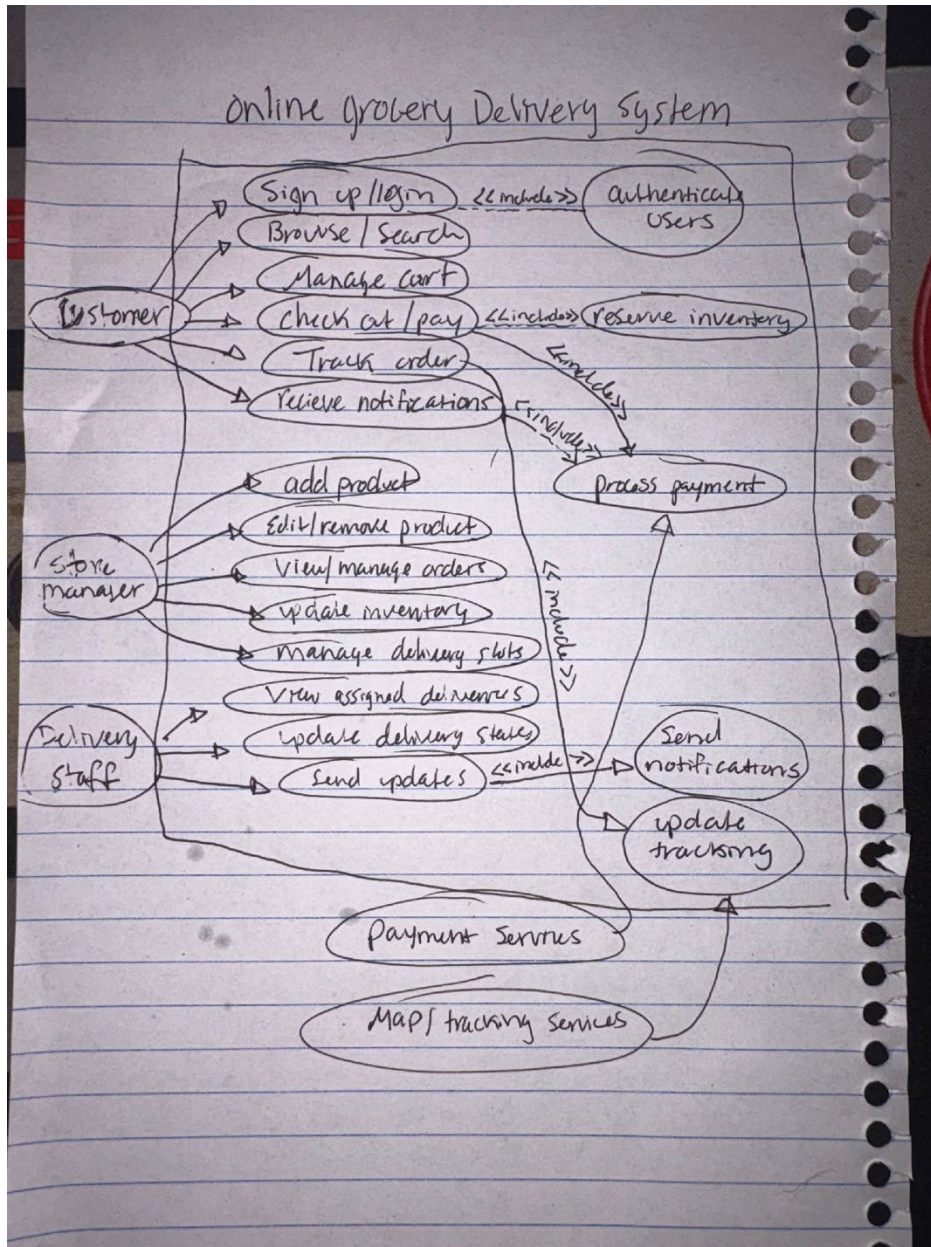 online grocery Delivery System
Sign up/login
<<include>>
authenticate
users
Browse/Search
Manage cart
Customer
check out/pay
<<include>>
reserve inventory
Track order
<<inclde>>
recieve notifications
<<include>>
process payment
add product
Edit/remove product
Store
manager
view/manage orders
<<include>>
update inventory
manage delivery slots
view assigned deliverers
Delivery
staff
update delivery states
Send updates
<<inclde>>
Send
notifications
update
tracking
payment Services
Map/tracking services